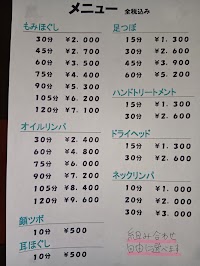 メニュー 全税込み
もみほぐし
30分 ¥2.000
45分 ¥2.700
60分 ¥3.500
75分 ¥4.400
90分 ¥5.300
105分 ¥6.200
120分 ¥7.100
オイルリンパ
30分 ¥2.400
45分 ¥3.600
60分 ¥4.800
75分 ¥6.000
90分 ¥7.200
105分 ¥8.400
120分 ¥9.600
顔ツボ
10分 ¥500
耳ほぐし
10分 ¥500
足つぼ
15分 ¥1.300
30分 ¥2.600
45分 ¥3.900
60分 ¥5.200
ハンドトリートメント
15分 ¥1.300
30分 ¥2.600
ドライヘッド
15分 ¥1.300
30分 ¥2.600
ネックリンパ
10分 ¥1.000
20分 ¥2.000
30分 ¥3.000
組み合わせ
自由に選べます